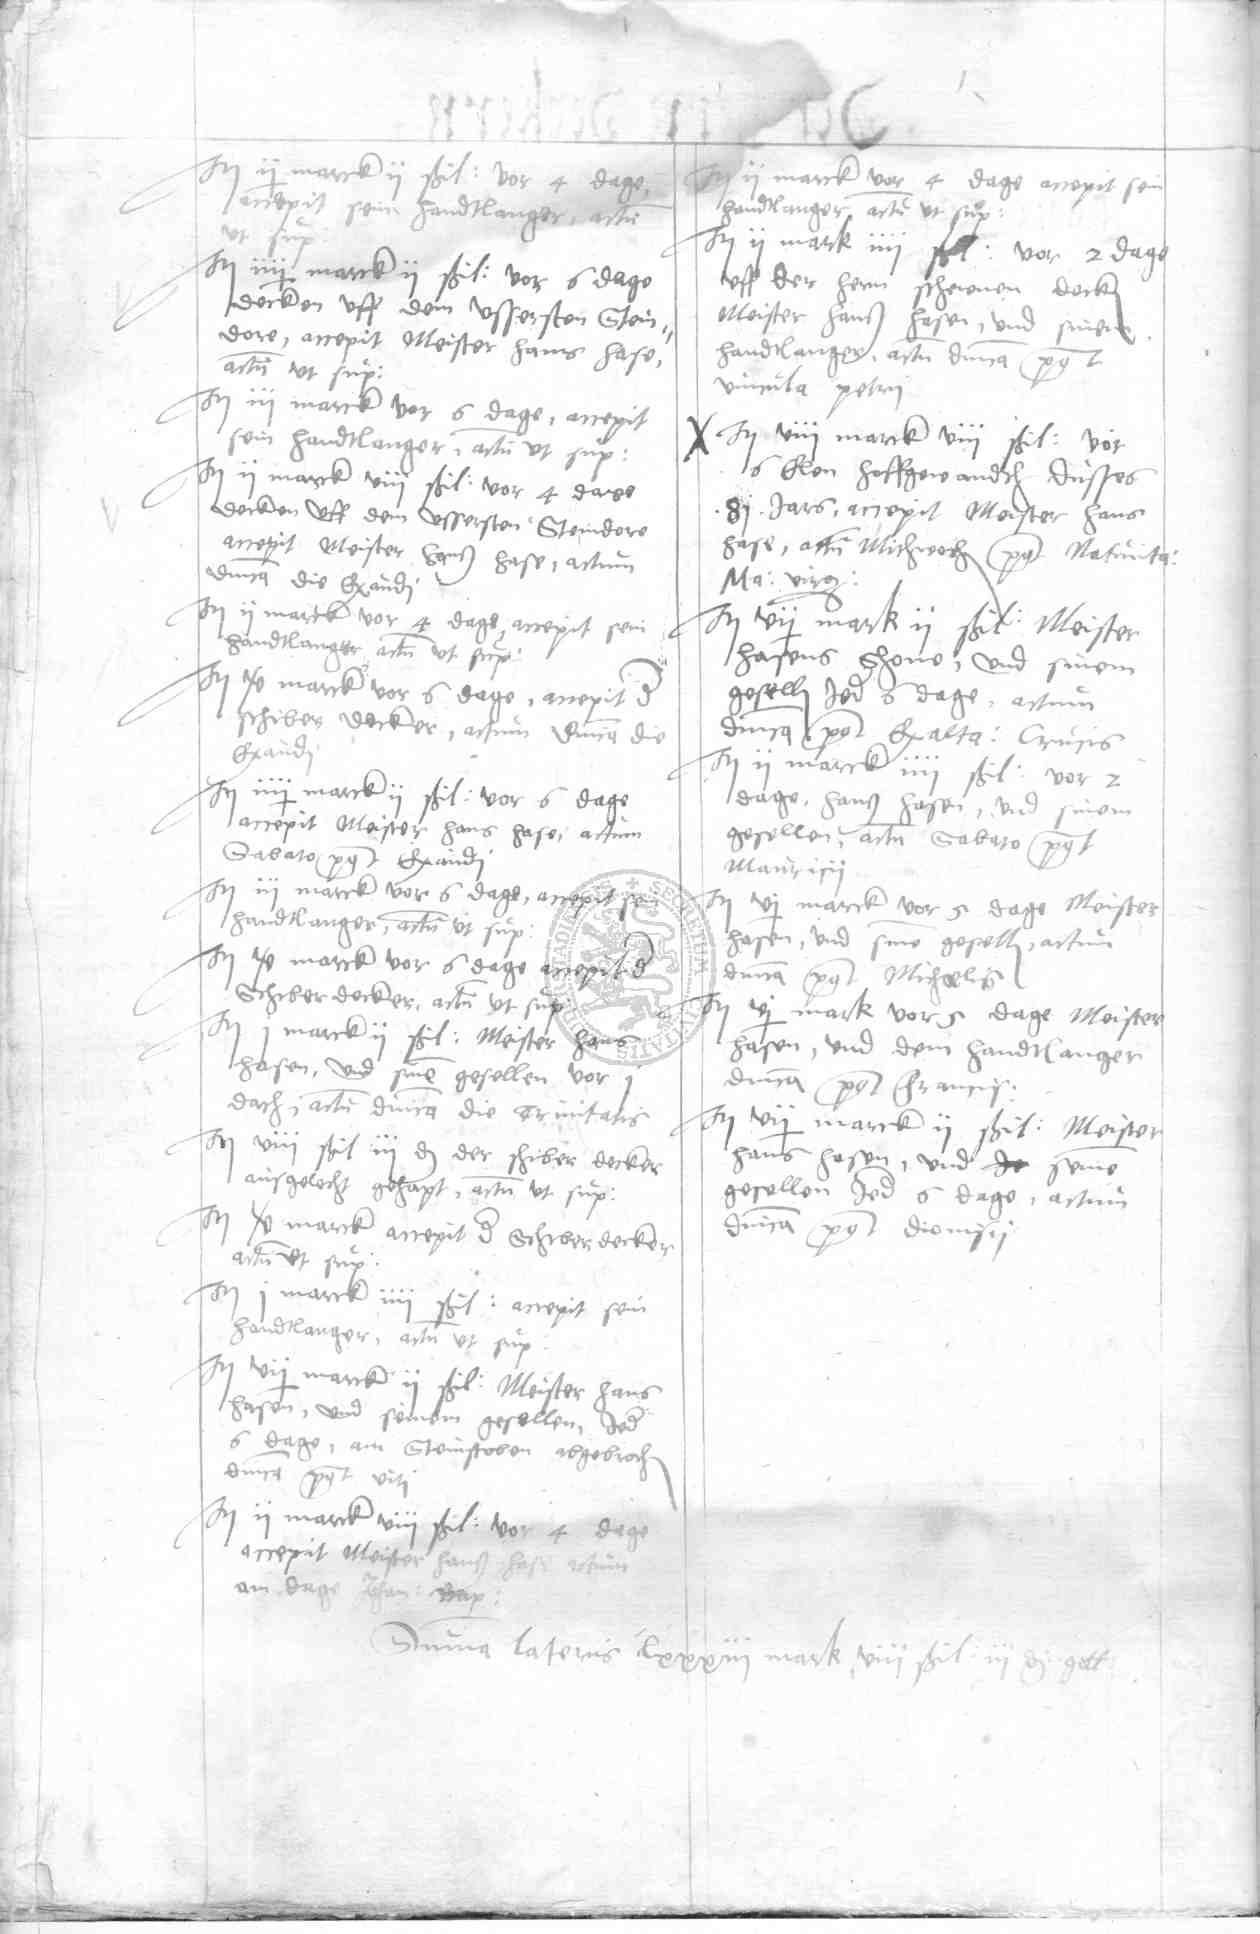 Itẽ ii marck ii ßil: vor 4 dage,
accepit sein handtlanger, actũ
ut sup:
Itẽ iiii marck ii ßil: vor 6 dage
decken uff dem ussersten Stein=
dore, accepit Meister Hans Hase,
actũ ut sup:
Itẽ iii marck vor 6 dage, accepit
sein handtlanger, actũ ut sup:
Itẽ ii marck viii ßil: vor 4 dage
decken uff dem ussersten Steindore
accepit Meister Hanß Hase, actum
dñica die Exaudi
Itẽ ii marck vor 4 dage, accepit sein
handtlanger actũ ut sup:
Itẽ marck vor 6 dage, accepit d
schiber decker, actum dñica die
Exaudi
Itẽ iiii marck ii ßil: vor 6 dage
accepit Meister Hans Hase, actum
Sabato post Exaudi
Itẽ iii marck vor 6 dage, accepit sein
handtlanger, actũ ut sup:
Itẽ marck vor 6 dage accepit d
Schiber decker, actũ ut sup:
Itẽ j marck ii ßil: Meister Hans
Hasen, und sinẽ gesellen vor j
dach, actũ dñica die Trinitatis
Itẽ viii ßil iii d der schiber decker
ausgelecht gehapt, actũ ut sup:
Itẽ marck accepit d Schiber decker
actũ ut sup:
Itẽ j marck iiii ßil: accepit sein
handtlanger, actũ ut sup:
Itẽ vii marck ii ßil: Meister Hans
Hasen, und seinem gesellen, Jed
6 dage, am abgebroch
dñica post viti
Itẽ ii marck viii ßil: vor 4 dage
accepit Meister Hanß Hase actum
am dage Johan: Bap:
Itẽ ii marck vor 4 dage accepit sein
handtlanger, actũ ut sup:
Itẽ ii mark iiii ßil: vor 2 dage
uff der hern scheunen deck
Meister Hanß Hasen, und sinem
handtlanger, actũ dñica post
vincula petrij
X Itẽ viii marck viii ßil: vor
6 Elen hoffgewandth dusses
.8j. Jars, accepit Meister Hans
Hase, actũ Mithwoch post Natiuita:
Ma: virg:
Itẽ vii mark ii ßil: Meister
Hasens Shone, und sinem
gesell Jed 6 dage, actum
dñica post Exalta: Crucis
Itẽ ii marck iiii ßil: vor 2
dage, Hanß Hasen, und sinem
gesellen, actũ Sabato post
Mauricij
Itẽ vj marck vor 5 dage Meister
Hasen, und sinẽ gesell, actum
dñica post Michaelis
Itẽ vj mark vor 5 dage Meister
Hasen, und dem handtlanger
dñica post Francis:
Itẽ vii marck ii ßil: Meister
Hanß Hasen, und seinẽ
gesellen Jed 6 dage, actum
dñica post dionisij
Summa lateris lxxxiii mark viii ßil: iii d
SECRETUM CIVITATIS